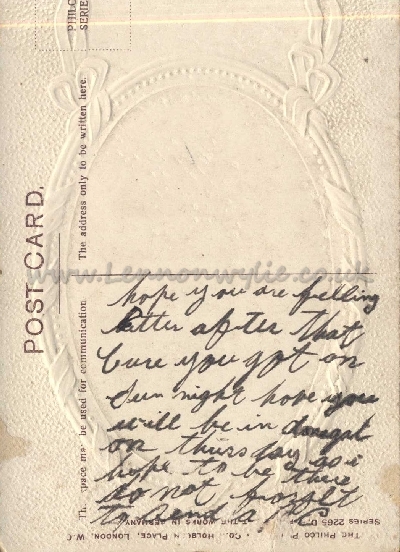 PHILCO
SERIES
POST CARD.
The address only to be written here.
This space may be used for communication
www.Lennonwylie.co.uk
hope you are felling
better after that
Cure you got on
Sun night hope you
will be in
on thursday as i
hope to be there
do not forget
to send a PC
THE PHILCO P
HOLBORN PLACE, LONDON, W.C
SERIES 2265 D.
WORKS IN GERMANY